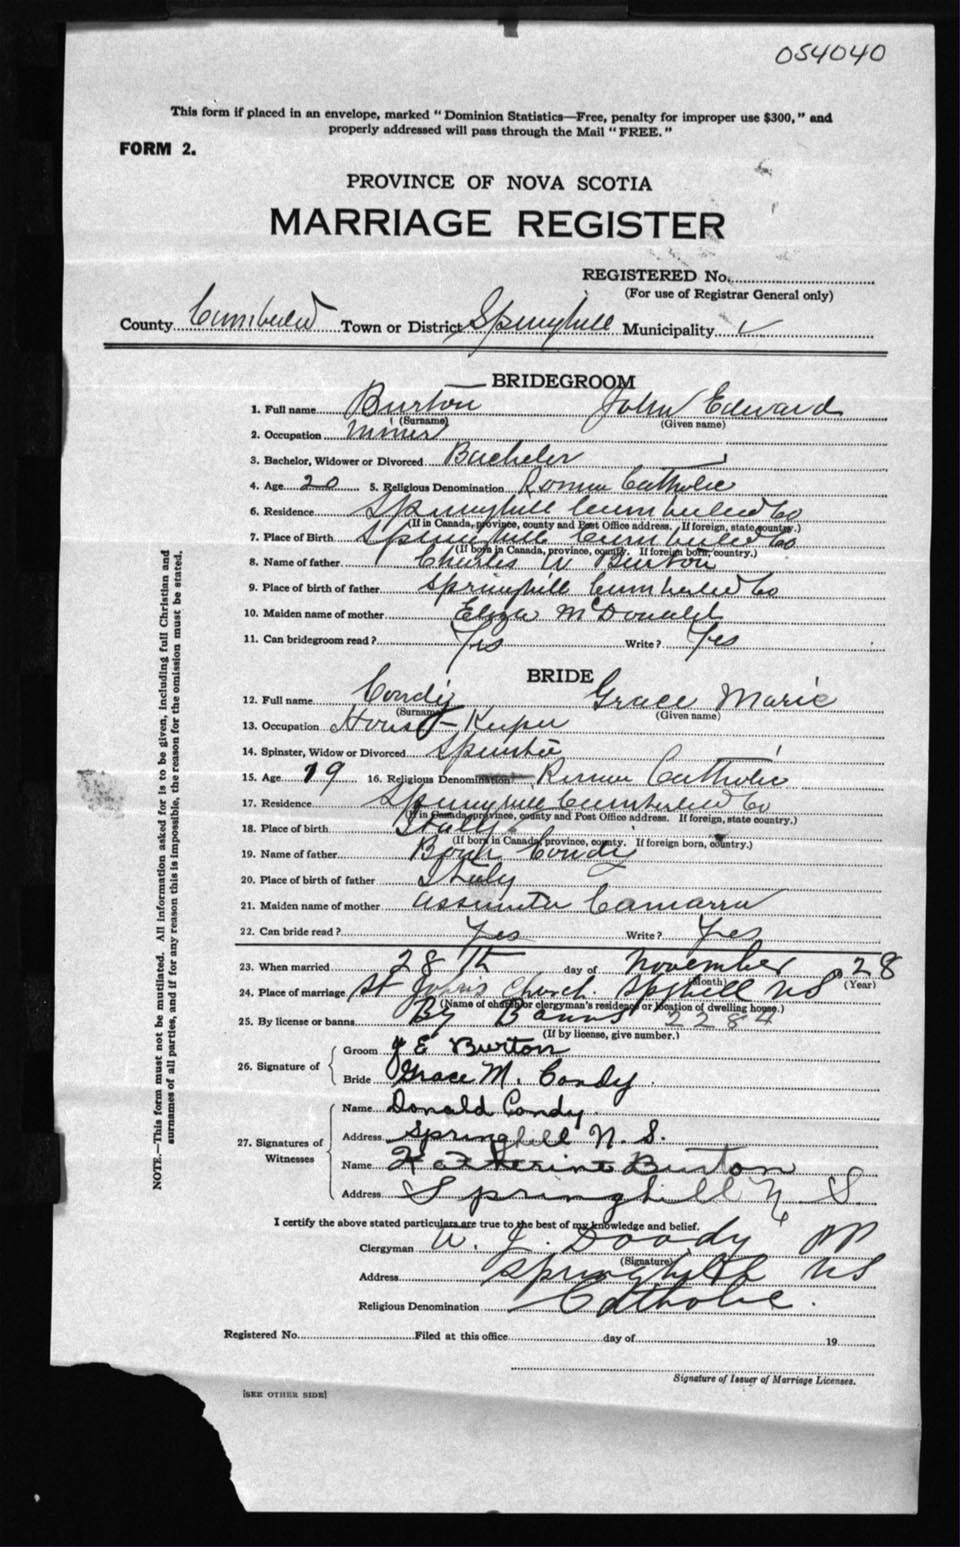 054040
This form if placed in an envelope, marked "Dominion Statistics—Free, penalty for improper use $300," and
properly addressed will pass through the Mail "FREE."
FORM 2.
PROVINCE OF NOVA SCOTIA
MARRIAGE REGISTER
REGISTERED No.
(For use of Registrar General only)
County Cumberland Town or District Springhill Municipality ✓
BRIDEGROOM
1. Full name Burton John Edward
(Surname) (Given name)
2. Occupation miner
3. Bachelor, Widower or Divorced Bachelor
4. Age 20 5. Religious Denomination Roman Catholic
6. Residence Springhill Cumberland Co
(If in Canada, province, county and Post Office address. If foreign, state country.)
7. Place of Birth Springhill Cumberland Co
(If born in Canada, province, county. If foreign born, country.)
8. Name of father Charles W Burton
9. Place of birth of father Springhill Cumberland Co
10. Maiden name of mother Eliza McDonald
11. Can bridegroom read? Yes Write? Yes
BRIDE
12. Full name Condy Grace Marie
(Surname) (Given name)
13. Occupation House-Keeper
14. Spinster, Widow or Divorced Spinster
15. Age 19 16. Religious Denomination Roman Catholic
17. Residence Springhill Cumberland Co
(If in Canada, province, county and Post Office address. If foreign, state country.)
18. Place of birth Italy
(If born in Canada, province, county. If foreign born, country.)
19. Name of father Condy
20. Place of birth of father Italy
21. Maiden name of mother Assunta Camarra
22. Can bride read? Yes Write? Yes
23. When married 28th day of November 1928
(Month) (Year)
24. Place of marriage St John's Church. Sp'hill NS
(Name of church or clergyman's residence or location of dwelling house.)
25. By license or banns By Banns 2284
(If by license, give number.)
26. Signature of
Groom J E Burton
Bride Grace M. Condy.
27. Signatures of Witnesses
Name Donald Condy.
Address Springhill N. S.
Name Katherine Burton
Address Springhill N. S.
I certify the above stated particulars are true to the best of my knowledge and belief.
Clergyman W. J. Doody PP
(Signature)
Address Springhill NS
Religious Denomination Catholic.
Registered No. Filed at this office day of 19
Signature of Issuer of Marriage Licenses.
[SEE OTHER SIDE]
NOTE.—This form must not be mutilated. All information asked for is to be given, including full Christian and
surnames of all parties, and if for any reason this is impossible, the reason for the omission must be stated.